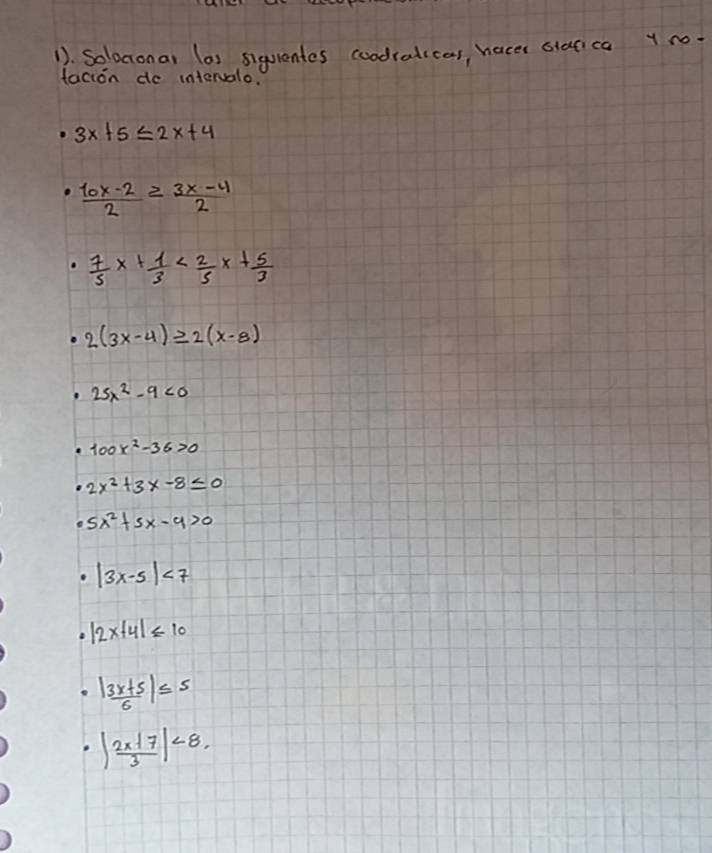 1). Solocionar los siguientes cuadraticas, hacer grafica y no-
tación de intervalo.
• 3x+5 ≤ 2x+4
• 10x-2/2 ≥ 3x-4/2
• 7/5 x + 1/3 < 2/5 x + 5/3
• 2(3x-4) ≥ 2(x-8)
• 25x² - 9 < 0
• 100x² - 36 > 0
• 2x² + 3x - 8 ≤ 0
• 5x² + 5x - 9 > 0
• |3x-5| < 7
• |2x+4| ≤ 10
• |3x+5/6| ≤ 5
• |2x+7/3| < 8.